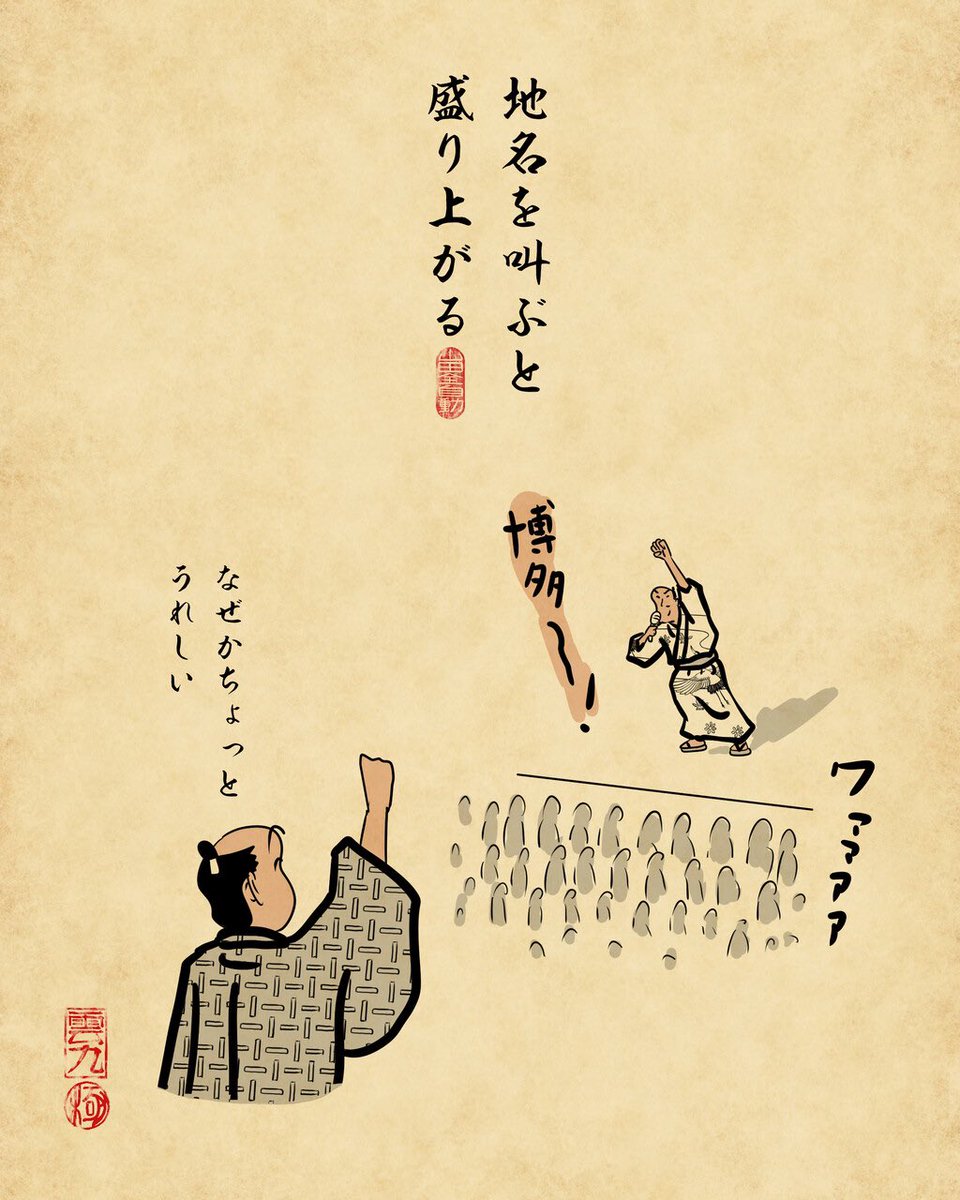 地名を叫ぶと
盛り上がる
博多〜!
なぜかちょっと
うれしい
ワァァァァ